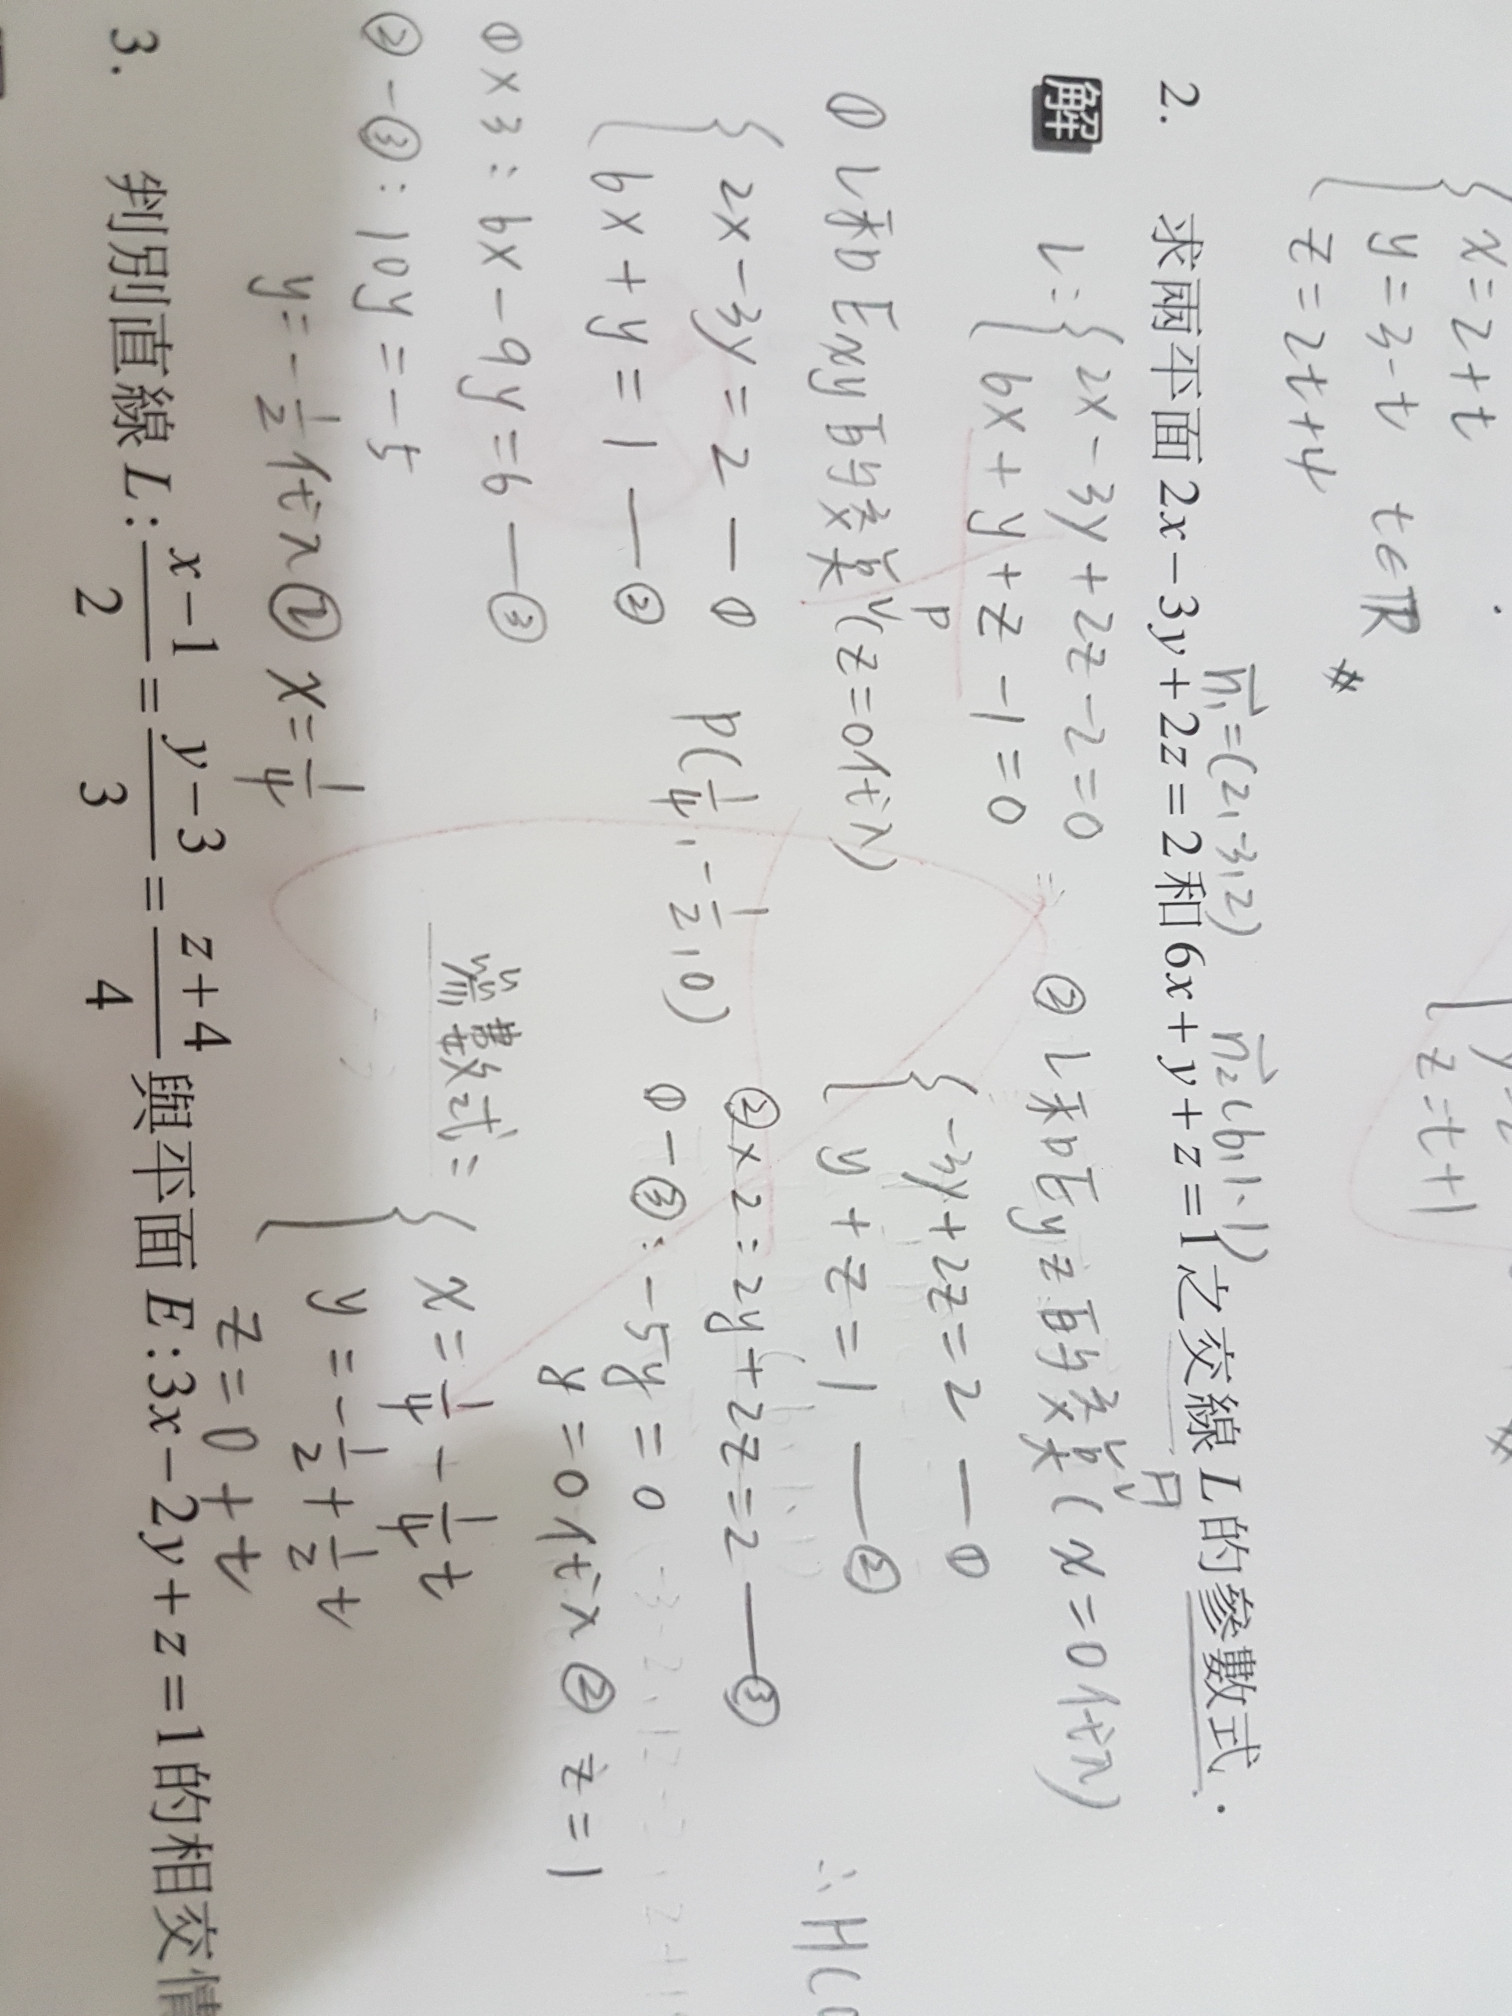 x=2+t
y=3-t t∈R
z=2t+4 #
z=t+1
n₁=(2,-3,2) n₂(6,1,1)
2. 求兩平面2x-3y+2z=2和6x+y+z=1之交線L的參數式.
解 L:{2x-3y+2z-2=0
6x+y+z-1=0
① L和Exy的交點P(z=0代入)
{2x-3y=2 —①
6x+y=1 —②
①×3:6x-9y=6 —③
②-③:10y=-5
y=-1/2代入② x=1/4
P(1/4,-1/2,0)
② L和Eyz的交點(x=0代入)
{-3y+2z=2 —①
y+z=1 —②
②×2:2y+2z=2 —③
①-③:-5y=0
y=0代入② z=1
∴H(0
參數式=
{x=1/4-1/4t
y=-1/2+1/2t
z=0+t
3. 判別直線L:x-1/2=y-3/3=z+4/4與平面E:3x-2y+z=1的相交情